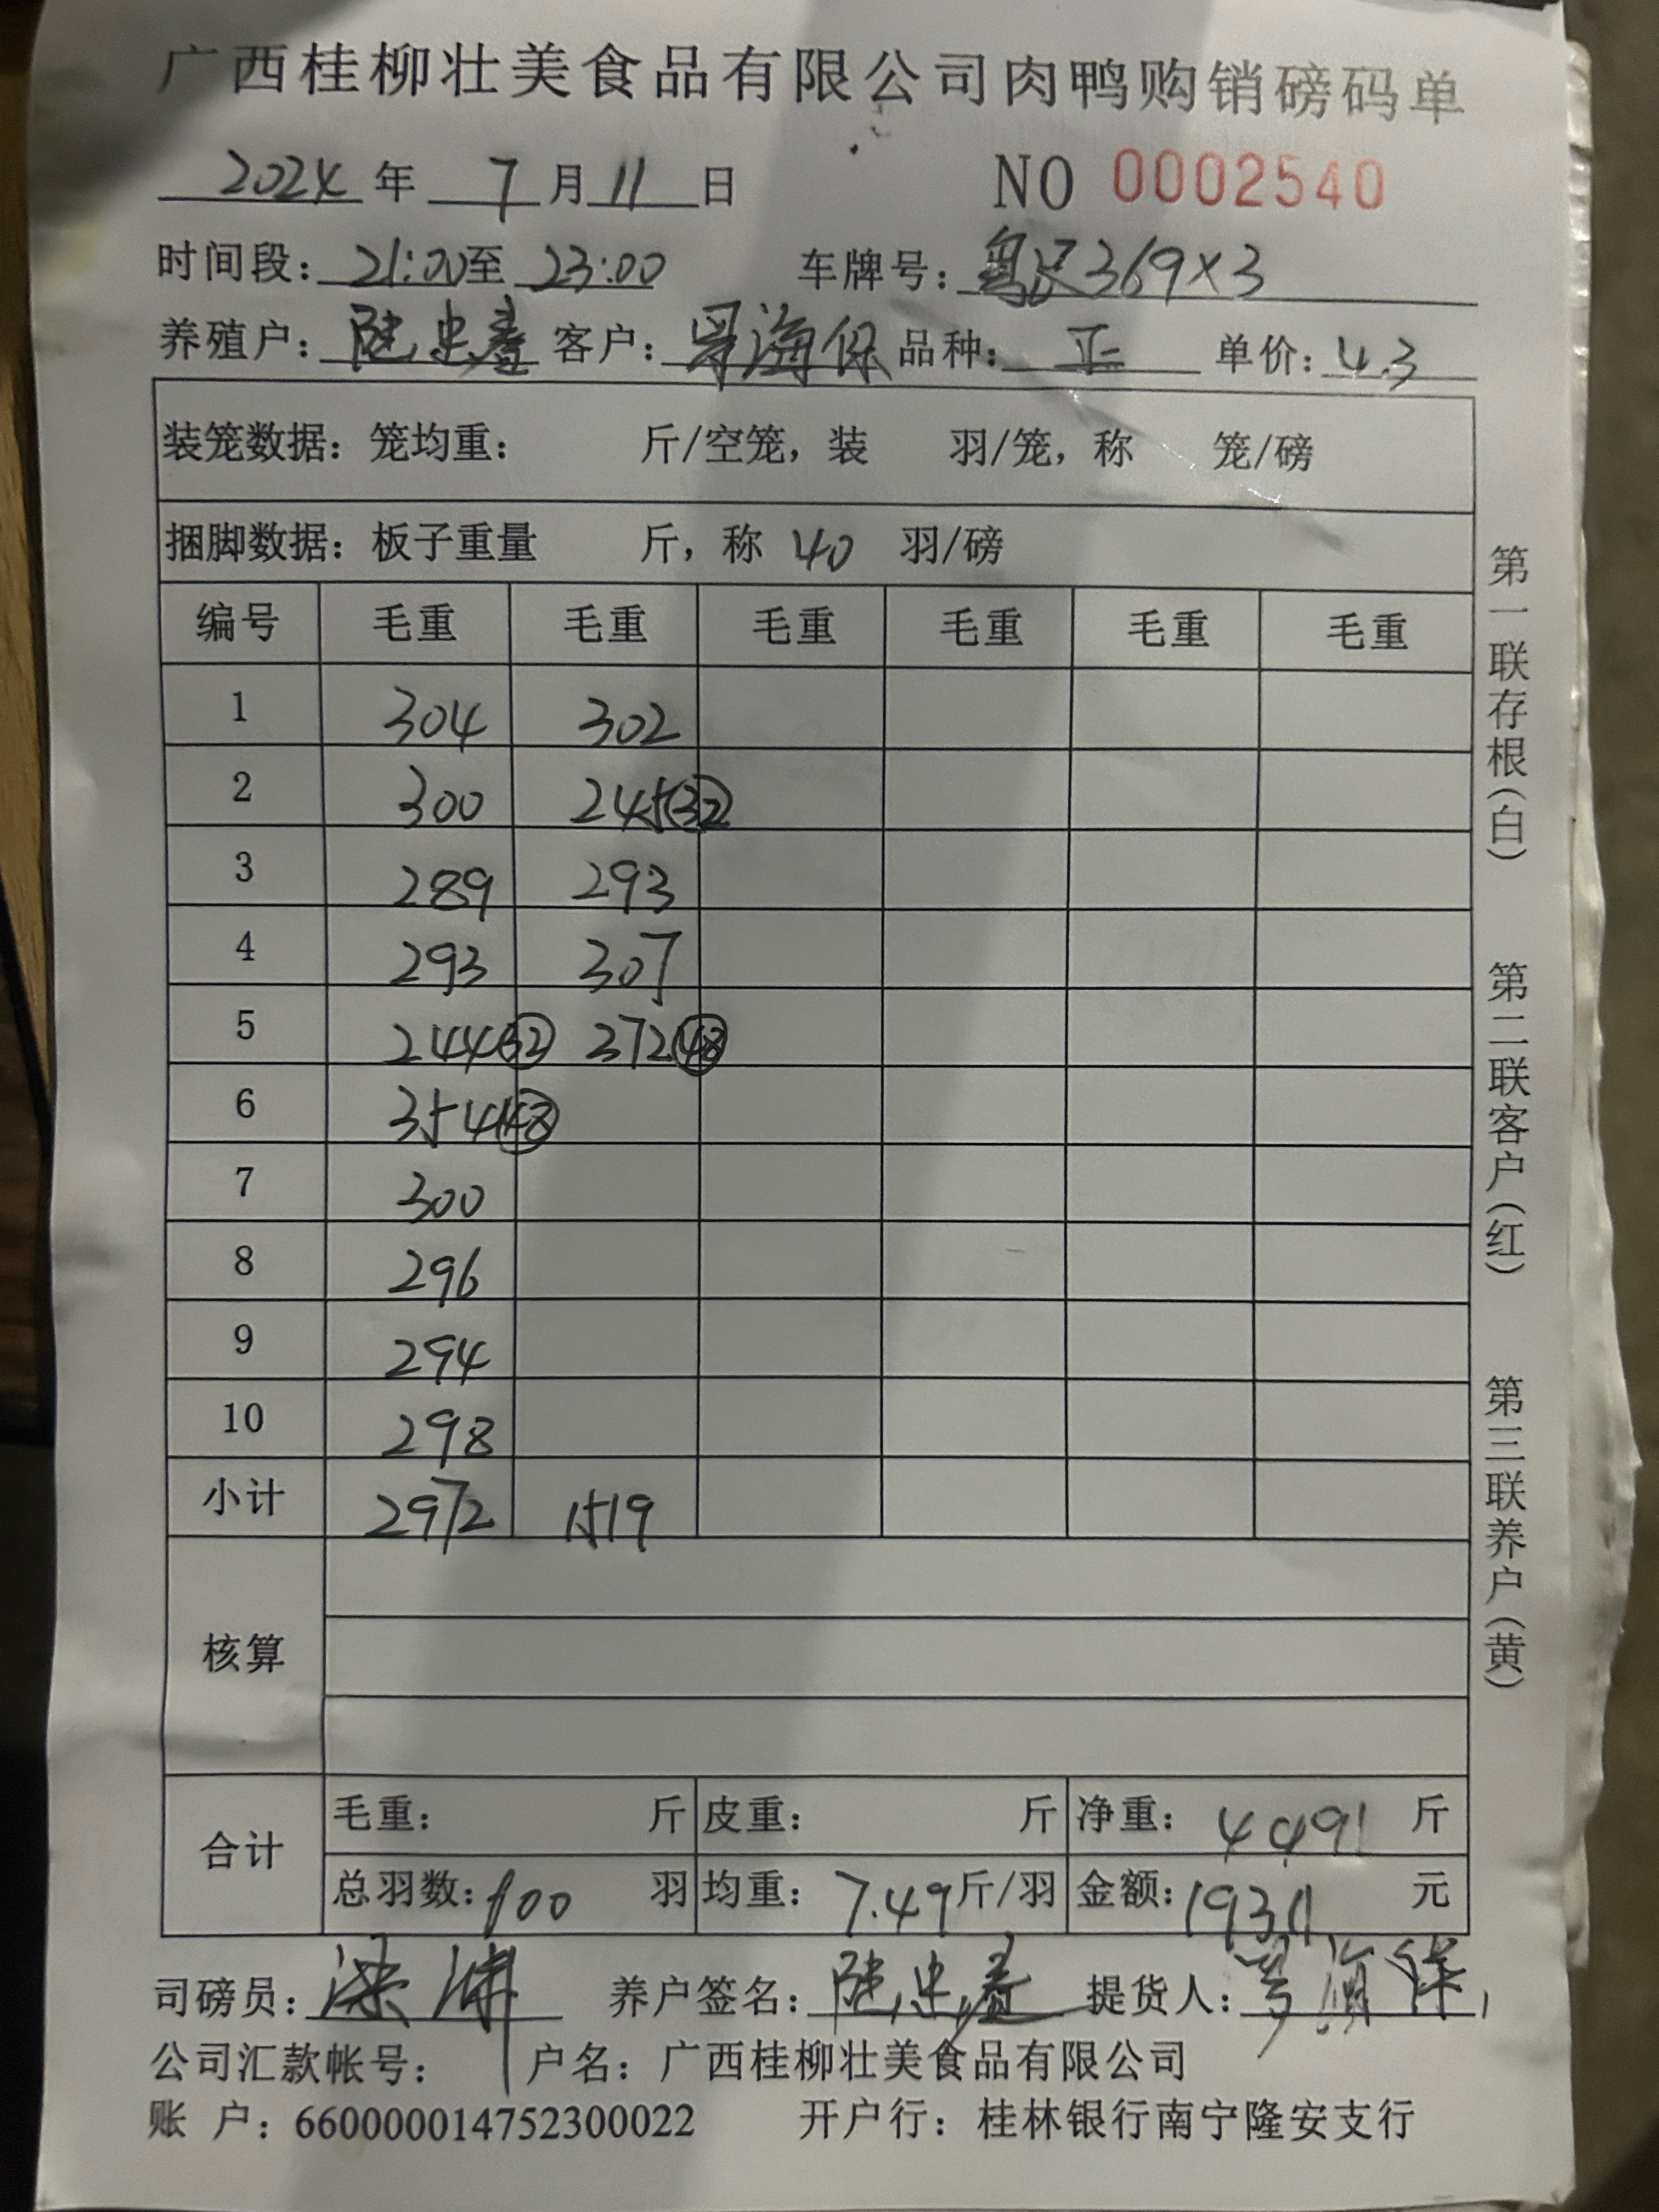 广西桂柳壮美食品有限公司肉鸭购销磅码单
2024 年 7 月 11 日 NO 0002540
时间段: 21:00 至 23:00 车牌号: 369X3
养殖户: 陆忠 客户: 海保 品种: 正 单价: 4.3
装笼数据: 笼均重: 斤/空笼, 装 羽/笼, 称 笼/磅
捆脚数据: 板子重量 斤, 称 40 羽/磅
编号 毛重 毛重 毛重 毛重 毛重 毛重
1 304 302
2 300 245 32
3 289 293
4 293 307
5 244 32 372 48
6 354 48
7 300
8 296
9 294
10 298
小计 2972 1519
核算
合计
毛重: 斤 皮重: 斤 净重: 4491 斤
总羽数: 600 羽 均重: 7.49 斤/羽 金额: 19311 元
司磅员: 梁 养户签名: 陆忠 提货人: 海保
公司汇款帐号: 户名: 广西桂柳壮美食品有限公司
账 户: 660000014752300022 开户行: 桂林银行南宁隆安支行
第一联存根(白) 第二联客户(红) 第三联养户(黄)